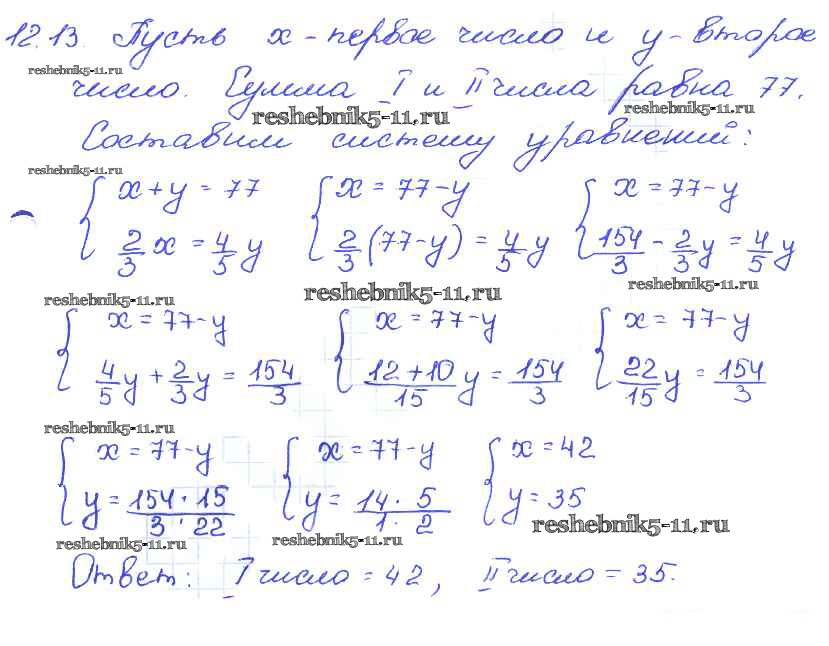 12.13. Пусть x - первое число и y - второе
reshebnik5-11.ru
число. Сумма I и II числа равна 77.
reshebnik5-11.ru reshebnik5-11.ru
Составим систему уравнений:
reshebnik5-11.ru
{ x + y = 77 { x = 77 - y { x = 77 - y
2/3 x = 4/5 y 2/3 (77 - y) = 4/5 y 154/3 - 2/3 y = 4/5 y
reshebnik5-11.ru reshebnik5-11.ru reshebnik5-11.ru
{ x = 77 - y { x = 77 - y { x = 77 - y
4/5 y + 2/3 y = 154/3 (12 + 10)/15 y = 154/3 22/15 y = 154/3
reshebnik5-11.ru
{ x = 77 - y { x = 77 - y { x = 42
y = (154 · 15)/(3 · 22) y = (14 · 5)/(1 · 2) y = 35
reshebnik5-11.ru reshebnik5-11.ru reshebnik5-11.ru
Ответ: I число = 42, II число = 35.